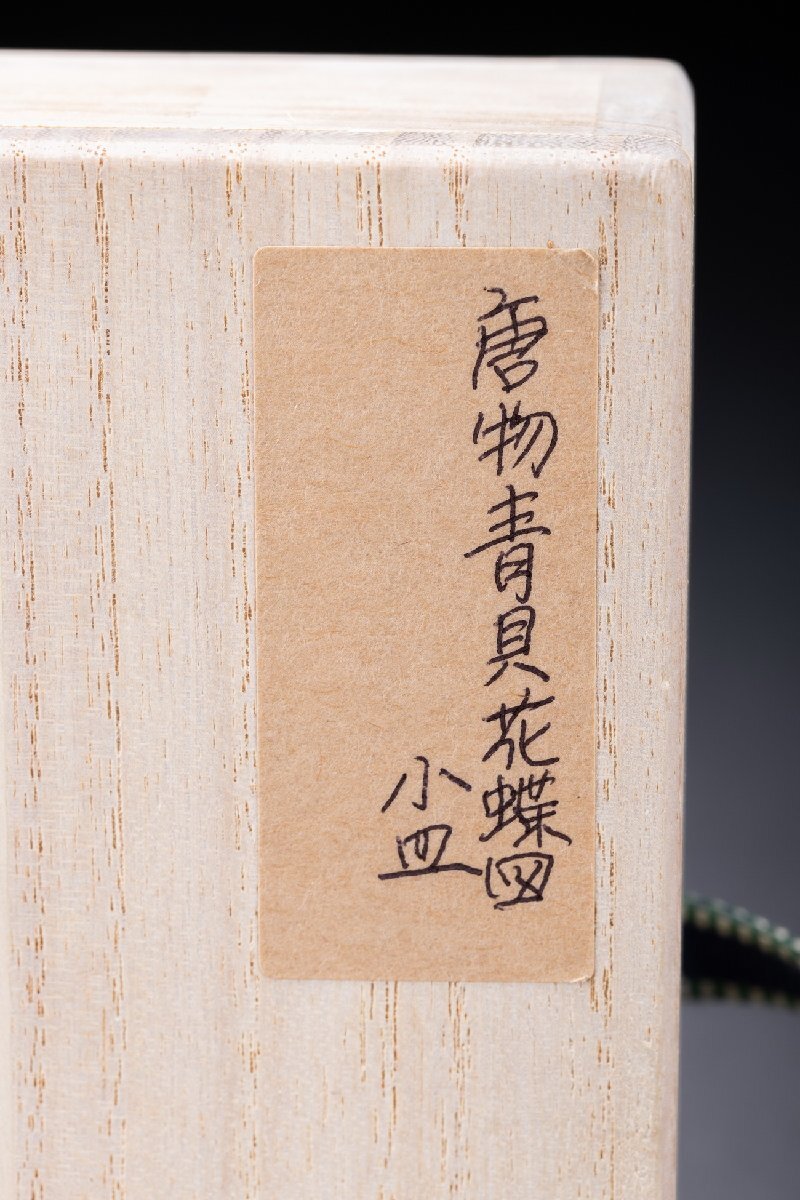 唐物青貝花蝶図
小皿